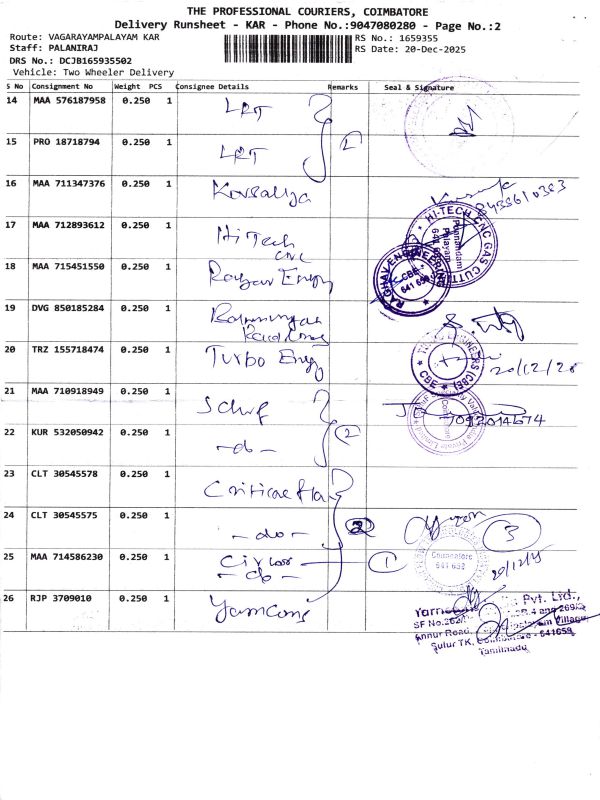 THE PROFESSIONAL COURIERS, COIMBATORE
Delivery Runsheet - KAR - Phone No.:9047080280 - Page No.:2
Route: VAGARAYAMPALAYAM KAR RS No.: 1659355
Staff: PALANIRAJ RS Date: 20-Dec-2025
DRS No.: DCJB165935502
Vehicle: Two Wheeler Delivery
S No Consignment No Weight PCS Consignee Details Remarks Seal & Signature
14 MAA 576187958 0.250 1 LRT
15 PRO 18718794 0.250 1 LRT
16 MAA 711347376 0.250 1 Kousalya
17 MAA 712893612 0.250 1 Hi Tech
CNC
18 MAA 715451550 0.250 1 Ragav Engg
19 DVG 850185284 0.250 1
20 TRZ 155718474 0.250 1 Turbo Engg 20/12/25
21 MAA 710918949 0.250 1
22 KUR 532050942 0.250 1 -do- 2
23 CLT 30545578 0.250 1
24 CLT 30545575 0.250 1 -do- 3
25 MAA 714586230 0.250 1 1
-do- 20/12/25
26 RJP 3709010 0.250 1 Yamcons
HI-TECH CNC GAS CUTTI
Ponnandam
Palayam
641
RAGHAV ENGINEERING
CBE
641 659
ENGINEERS (CBE)
CBE
Coimbatore
641 659
Pvt. Ltd.,
SF No.
Annur Road,
Village
Sulur TK, Coimbatore - 641659
Tamilnadu